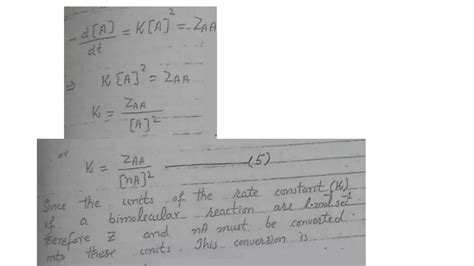 - d[A]/dt = K[A]² = Z_AA
⇒ K[A]² = Z_AA
K = Z_AA/[A]²
or K = Z_AA/[nA]² ———(5)
Since the units of the rate constant (K)
of a bimolecular reaction are l·mol sec⁻¹
therefore Z and nA must be converted
into these units. This conversion is